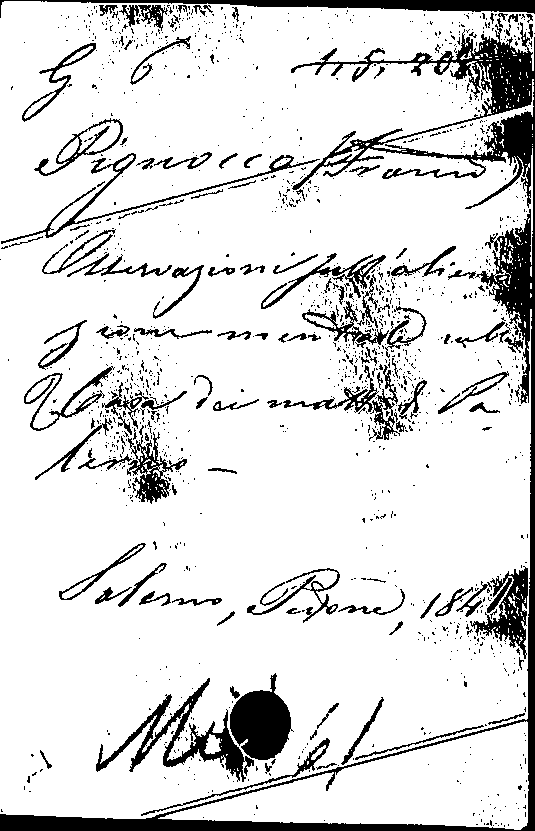 G. 6. 1, 5, 208
Pignocco (Franco)
Osservazioni sull'aliena
zione mentale nella
Casa dei matti di Pa
lermo —
Palermo, Pedone, 184